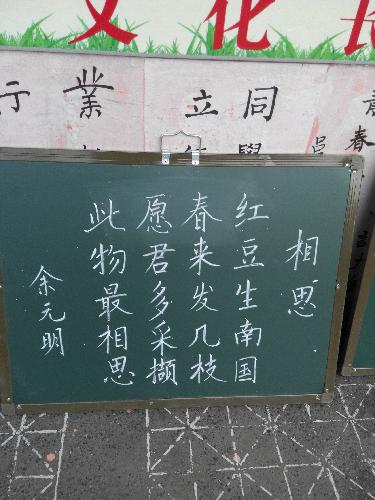 文化
业
行
同
立
春
相思
红豆生南国
春来发几枝
愿君多采撷
此物最相思
余元明